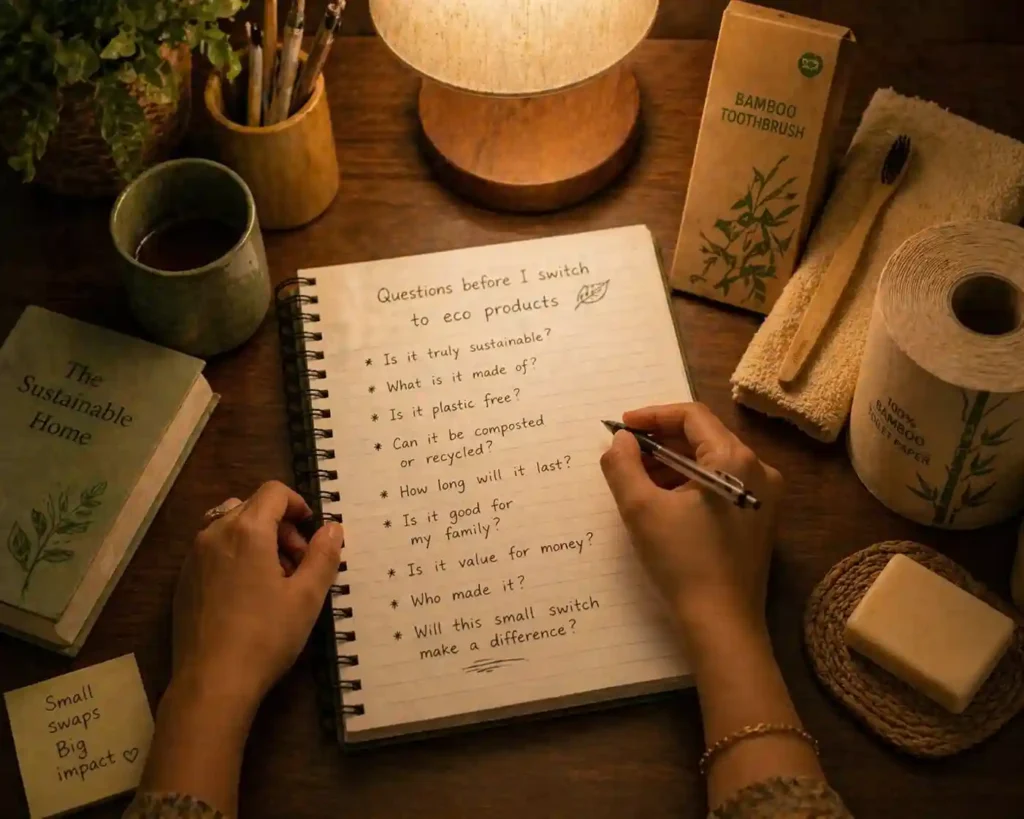 Questions before I switch
to eco products
* Is it truly sustainable?
* What is it made of?
* Is it plastic free?
* Can it be composted
or recycled?
* How long will it last?
* Is it good for
my family?
* Is it value for money?
* Who made it?
* Will this small switch
make a difference?
The
Sustainable
Home
Small
swaps
Big
impact ♡
BAMBOO
TOOTHBRUSH
100%
BAMBOO
TOILET PAPER